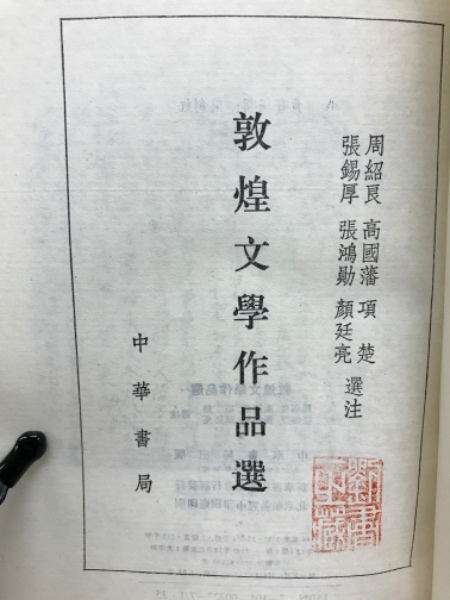 周紹良 高國藩 項楚
張錫厚 張鴻勛 顏廷亮
選注
敦煌文學作品選
中華書局